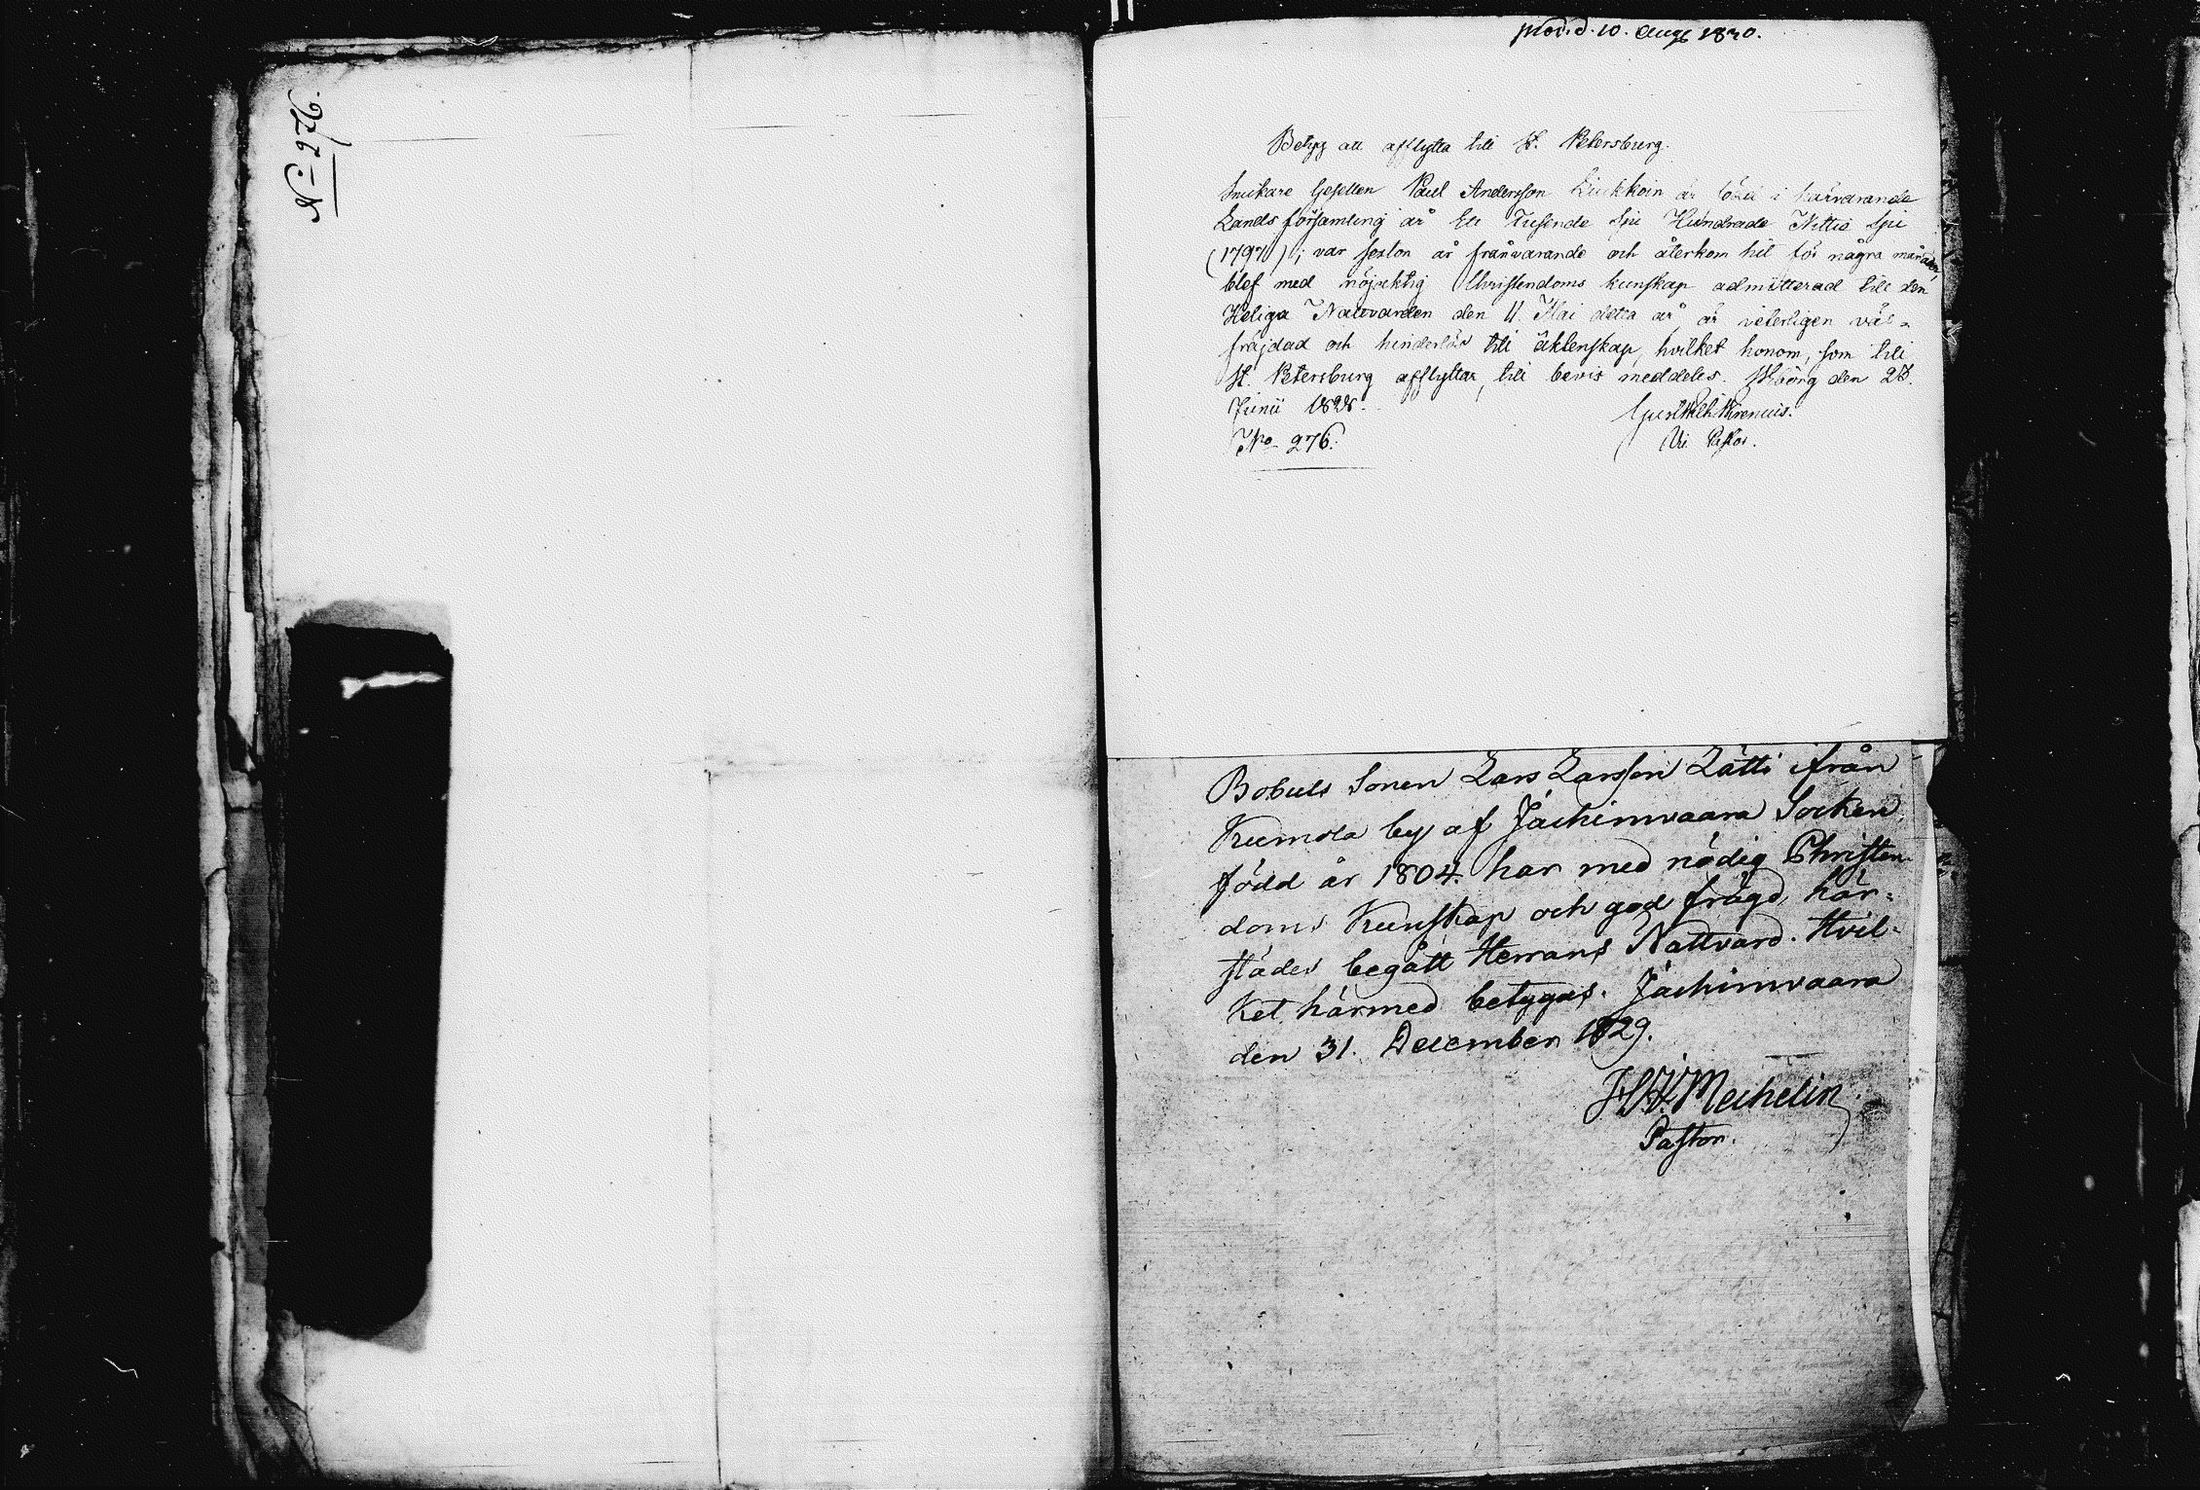 No 276.
Prod. d. 10. Aug 1830.
Betyg att afflytta till St. Petersburg.
Snickare Gesellen Paul Andersson är född i härvarande
Lands församling år Ett Tusende Sju Hundrade Nittio Sju
(1797); var sexton år frånvarande och återkom hit för några månader,
blef med nöjaktig Christendoms kunskap admitterad till den
Heliga Nattvarden den 11. Mai detta år är veterligen väl-
fräjdad och hinderlös till äktenskap, hvilket honom, som till
St. Petersburg afflyttar, till bevis meddeles. Wiborg den 28.
Junii 1828.
No 276.
Vic. Pastor.
Bobuls Sonen Lars Larsson Lätti ifrån
Kumola by af Jachimvaara Socken,
född år 1804. har med nödig Christen-
doms Kunskap och god frägd, här-
städes begått Herrans Nattvard. Hvil-
ket härmed betygas. Jachimvaara
den 31. December 1829.
Mechelin
Pastor.